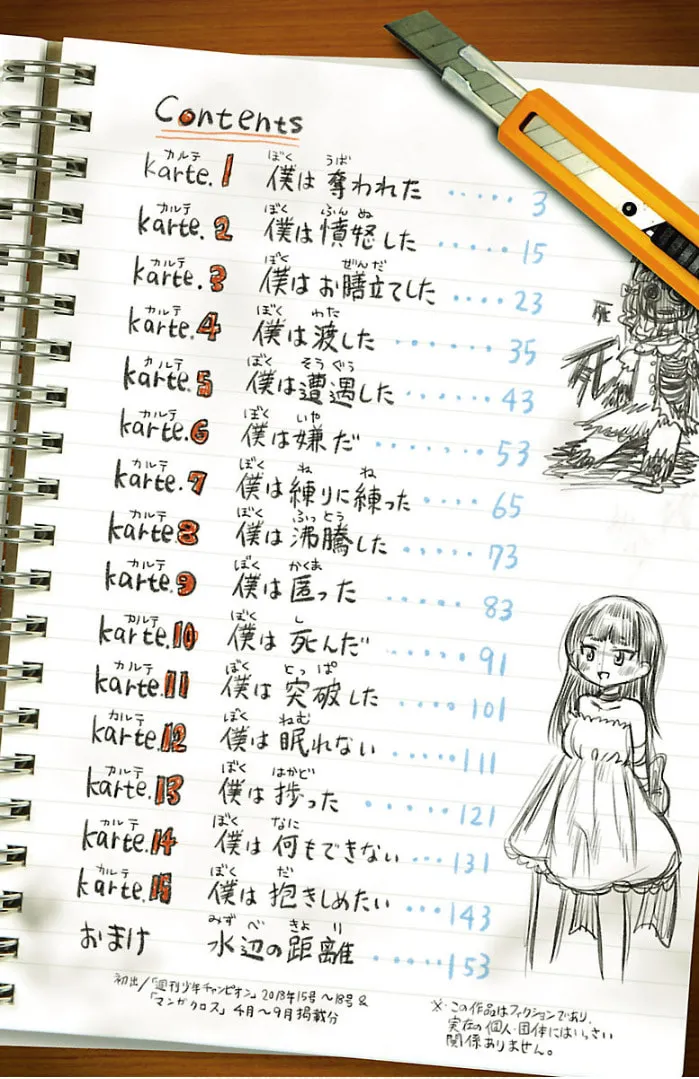 Contents
karte.1 カルテ 僕は奪われた ぼく うば ・・・・・ 3
karte.2 カルテ 僕は憤怒した ぼく ふんぬ ・・・・・・ 15
karte.3 カルテ 僕はお膳立てした ぼく ぜんだ ・・・・ 23
karte.4 カルテ 僕は渡した ぼく わた ・・・・・・・ 35
karte.5 カルテ 僕は遭遇した ぼく そうぐう ・・・・・・ 43
karte.6 カルテ 僕は嫌だ ぼく いや ・・・・・・・ 53
karte.7 カルテ 僕は練りに練った ぼく ね ね ・・・・ 65
karte.8 カルテ 僕は沸騰した ぼく ふっとう ・・・・・ 73
karte.9 カルテ 僕は匿った ぼく かくま ・・・・・ 83
karte.10 カルテ 僕は死んだ ぼく し ・・・・・ 91
karte.11 カルテ 僕は突破した ぼく とっぱ ・・・・・ 101
karte.12 カルテ 僕は眠れない ぼく ねむ ・・・・・ 111
karte.13 カルテ 僕は捗った ぼく はかど ・・・・・・ 121
karte.14 カルテ 僕は何もできない ぼく なに ・・・ 131
karte.15 カルテ 僕は抱きしめたい ぼく だ ・・・ 143
おまけ 水辺の距離 みずべ きょり ・・・・・ 153
初出/「週刊少年チャンピオン」2018年15号〜18号&
「マンガクロス」4月〜9月掲載分
※この作品はフィクションであり、
実在の個人・団体にはいっさい
関係ありません。